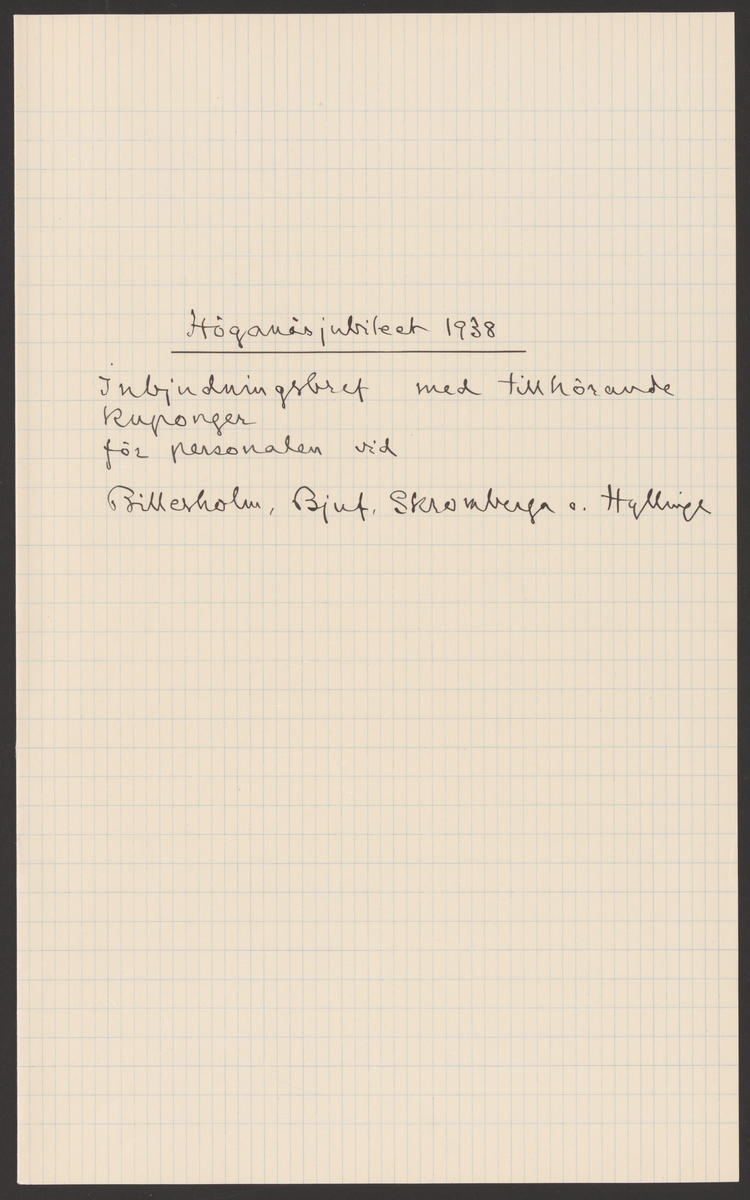 Höganäsjubileet 1938
Inbjudningsbref med tillhörande
kuponger
för personalen vid
Billesholm, Bjuf, Skromberga o. Hyllinge